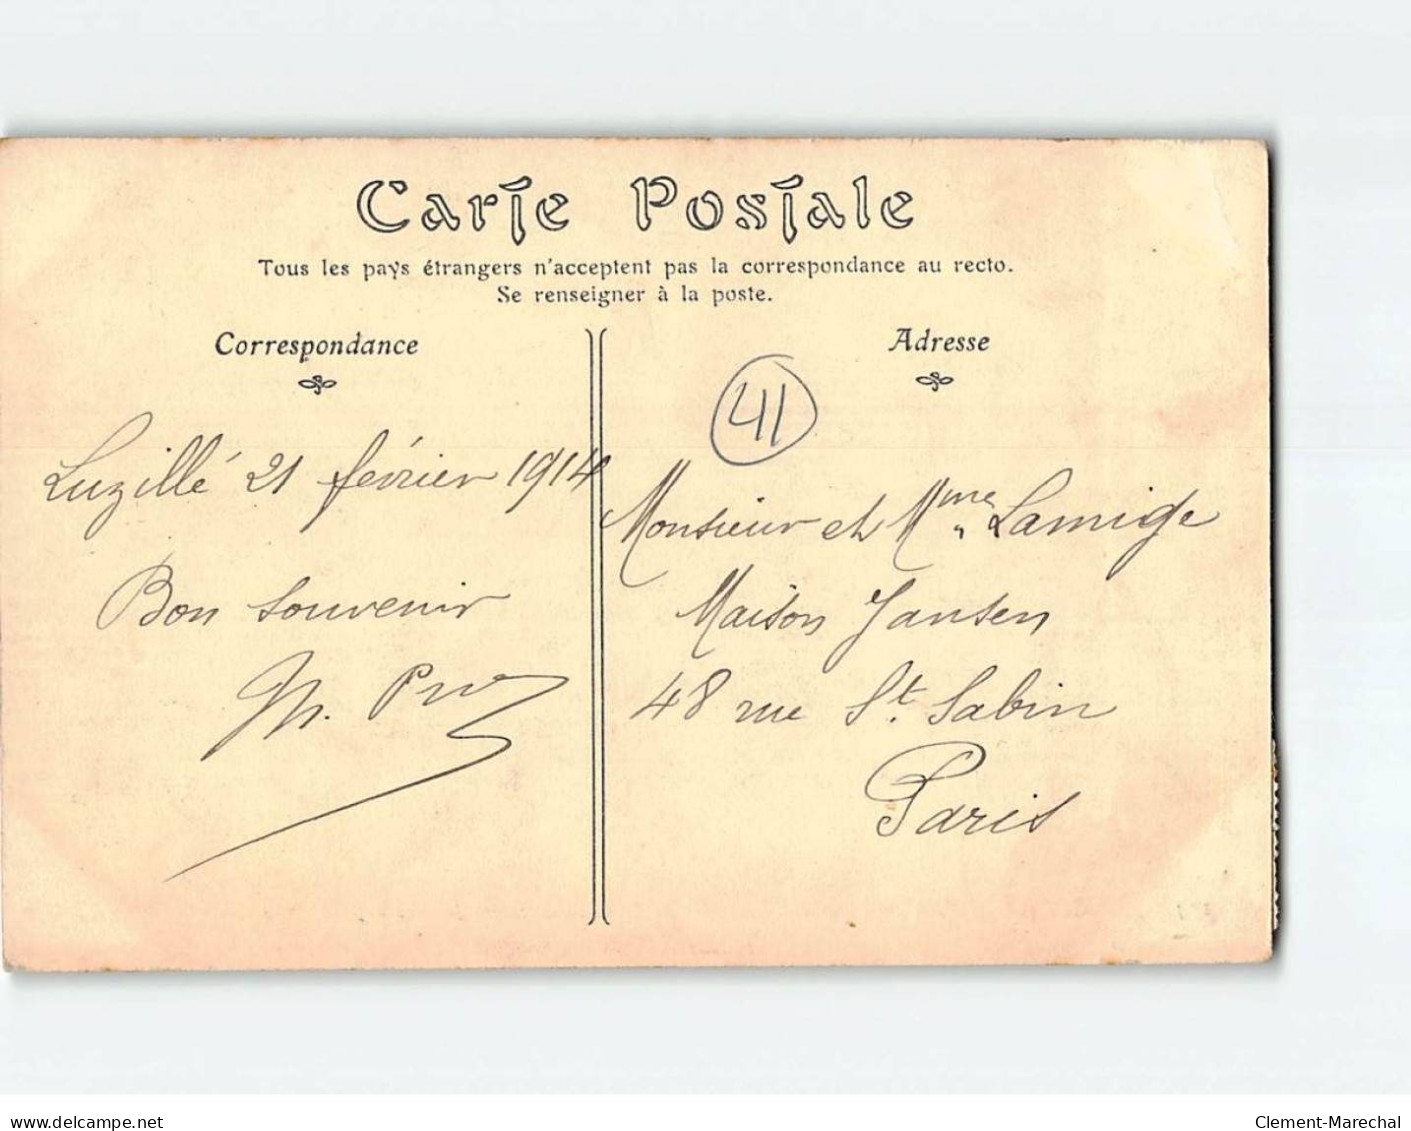 Carte Postale
Tous les pays étrangers n'acceptent pas la correspondance au recto.
Se renseigner à la poste.
Correspondance
Adresse
41
Luzillé 21 février 1914
Bon souvenir
M.
Monsieur et Mme Lamige
Maison Jansen
48 rue St. Sabin
Paris
delcampe.net
Clement-Marechal